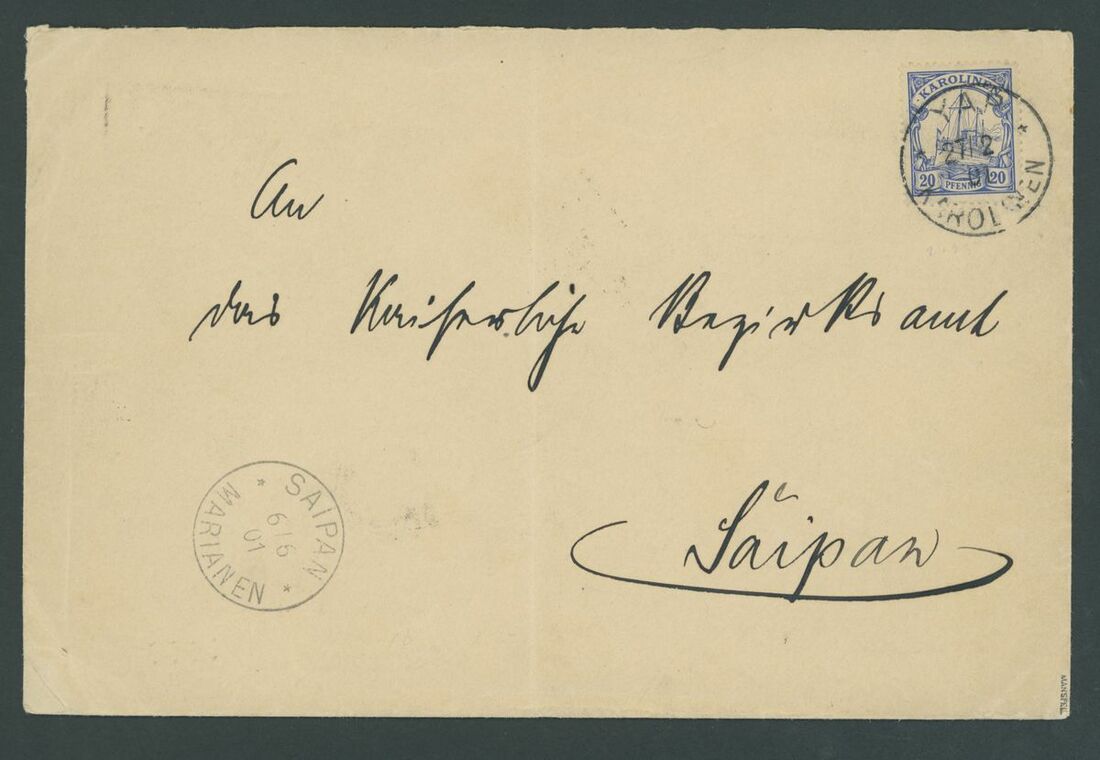 KAROLINEN
20 PFENNIG 20
YAP
27/2
01
KAROLINEN
An
das Kaiserliche Bezirksamt
Saipan
SAIPAN
6/6
01
MARIANEN
MANSFELD